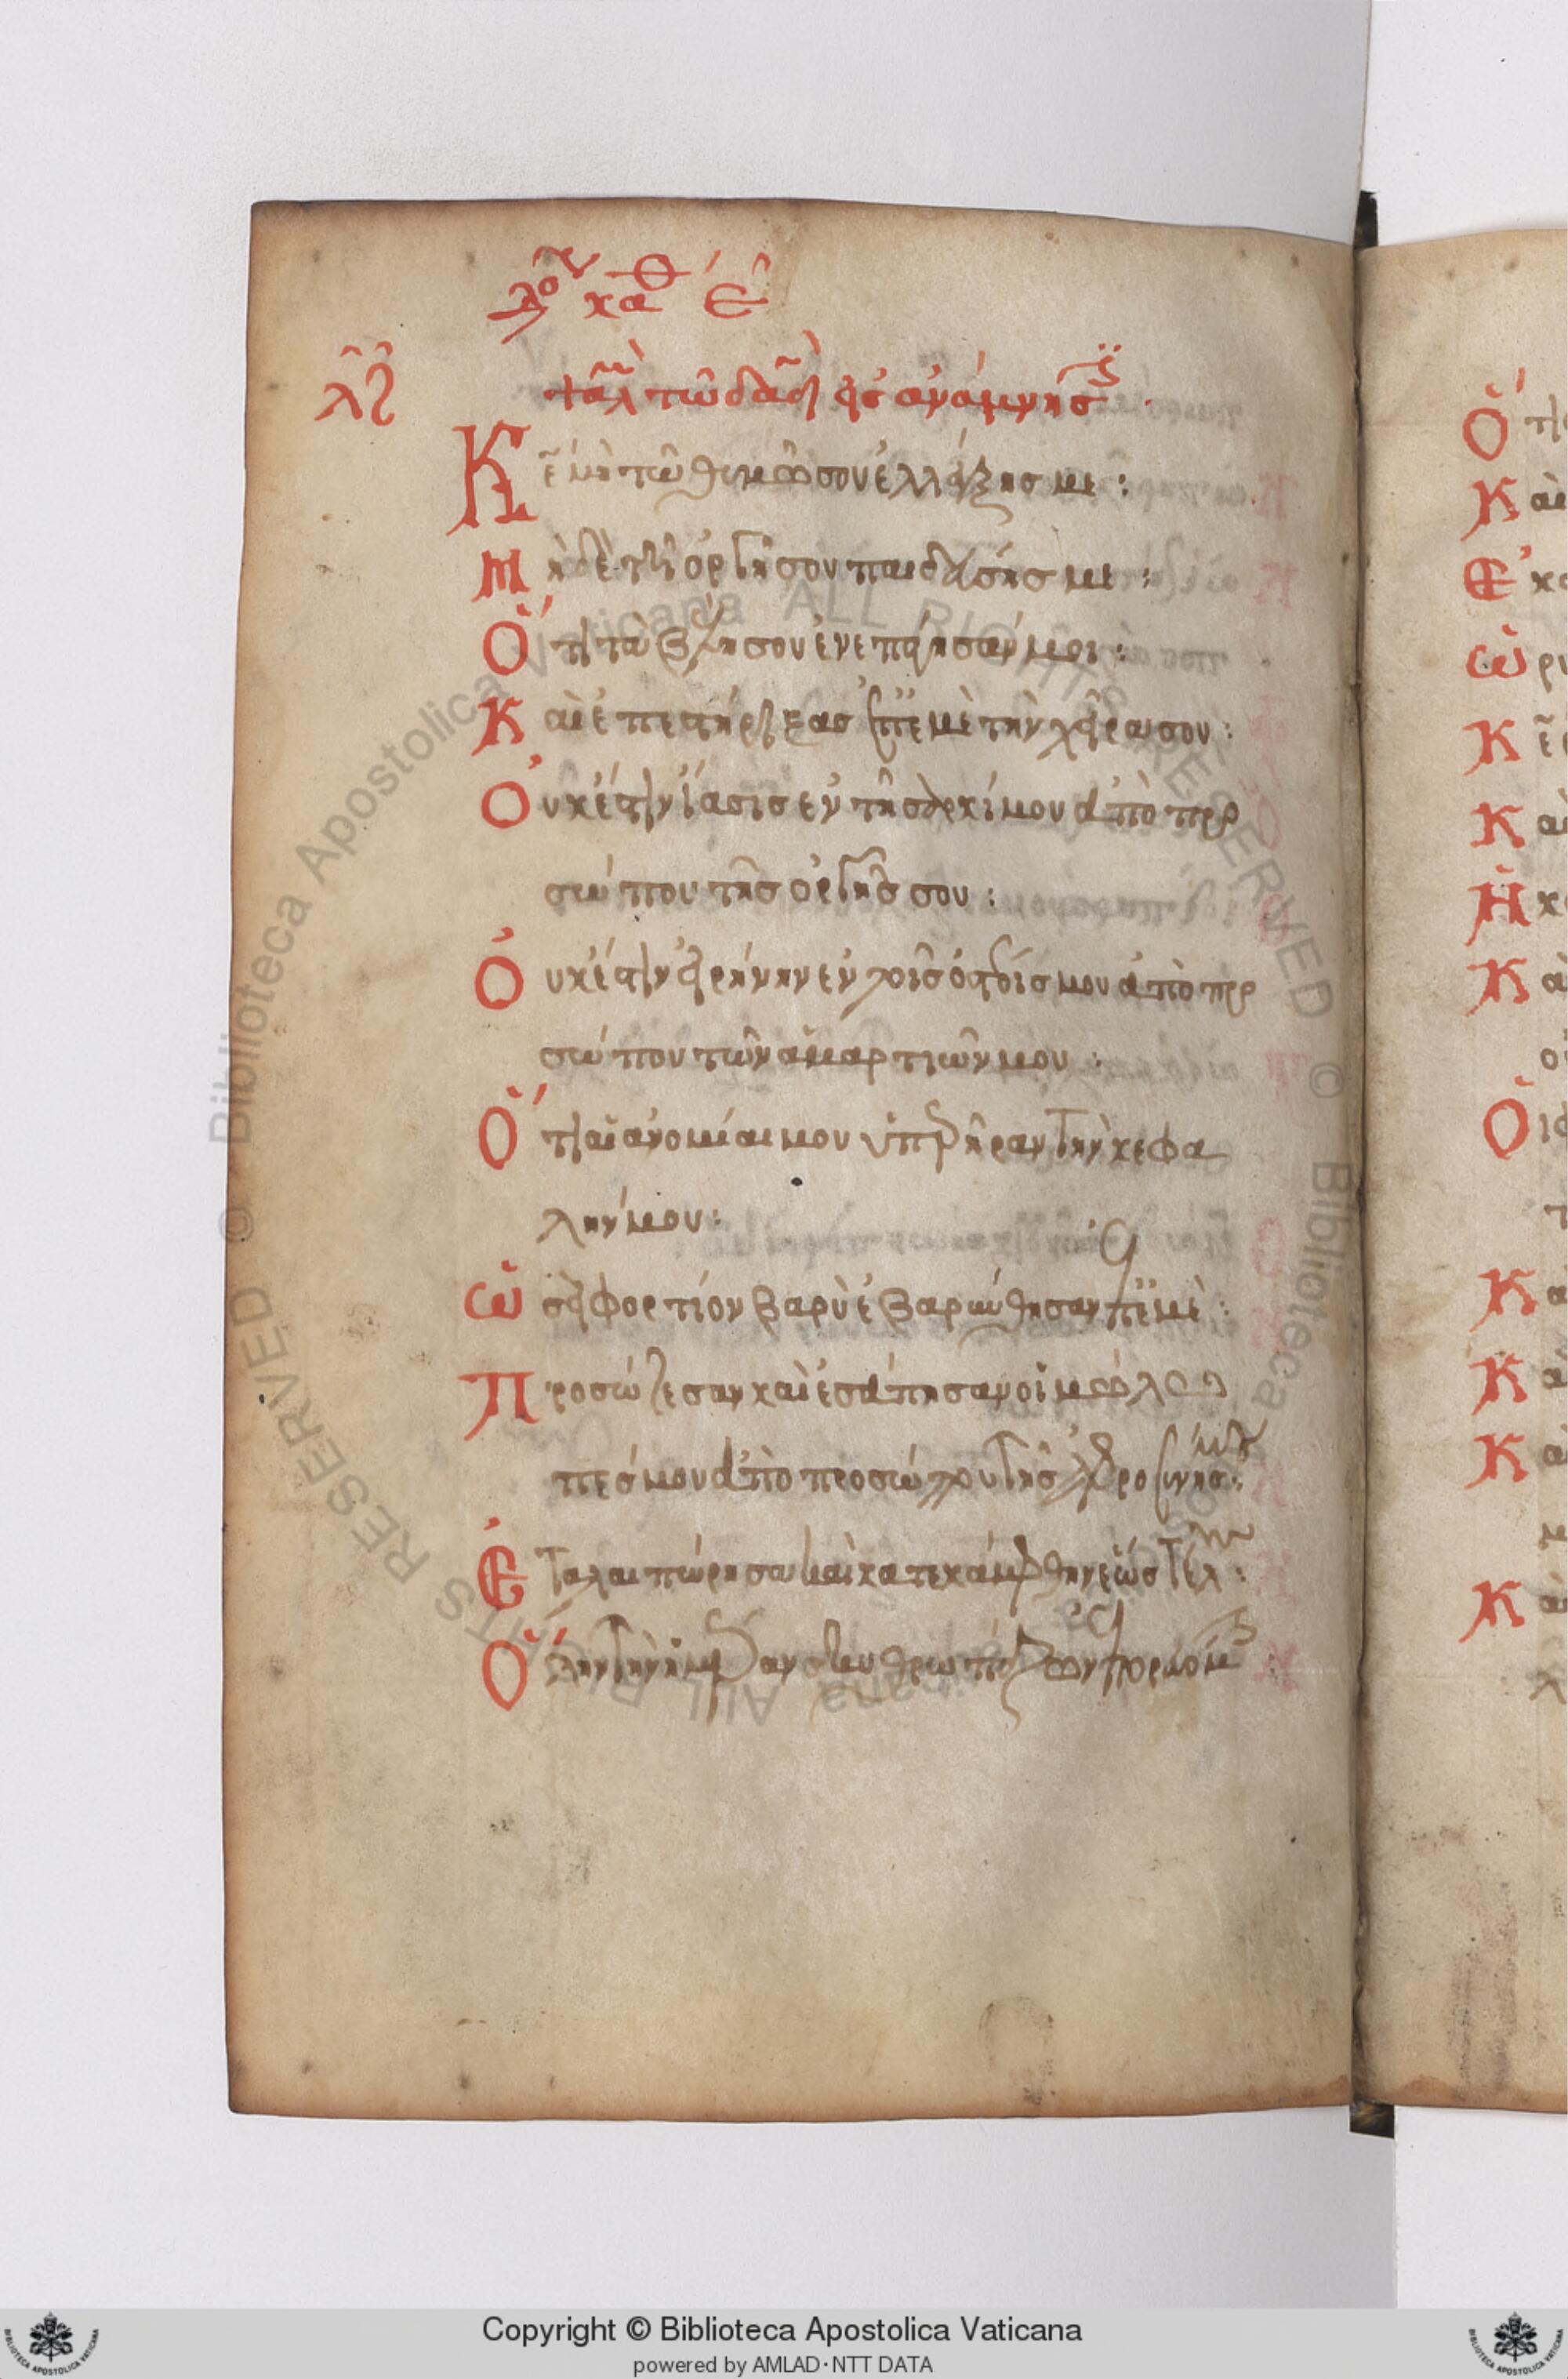 λόγου καθ ε
λζ
ψαλ τῶ δαδ εἰς ἀνάμνησ
Κε μὴ τῶ θυμῶ σου ἐλλέγξησ με :
Μηδὲ τῆ ὀργῆ σου παιδεύσησ με :
Ὅτι τὰ βέλη σου ἐνεπάγησάν μοι :
Καὶ ἐπεστήριξασ ἐπ ἐμὲ τὴν χεῖρα σου :
Οὐκ ἔστιν ἴασισ ἐν τῆ σαρκί μου ἀπὸ προ
σώπου τῆσ ὀργῆσ σου :
Οὐκ ἔστιν εἰρήνην ἐν τοῖσ ὀστοῖσ μου ἀπὸ προ
σώπου τῶν ἁμαρτιῶν μου :
Ὅτι αἱ ἀνομίαι μου ὑπερῆραν τὴν κεφα
λήν μου :
Ὡσεὶ φορτίον βαρὺ ἐβαρύνθησαν ἐπ ἐμὲ :
Προσώζεσαν καὶ ἐσάπησαν οἱ μώλω
πέσ μου ἀπὸ προσώπου τῆσ ἀφροσύνησ μου :
Ἐταλαιπώρησα καὶ κατεκάμφθην ἕωσ τέλουσ :
Ὅλην τὴν ἡμέραν σκυθρωπάζων ἐπορευόμην
Copyright © Biblioteca Apostolica Vaticana
powered by AMLAD·NTT DATA